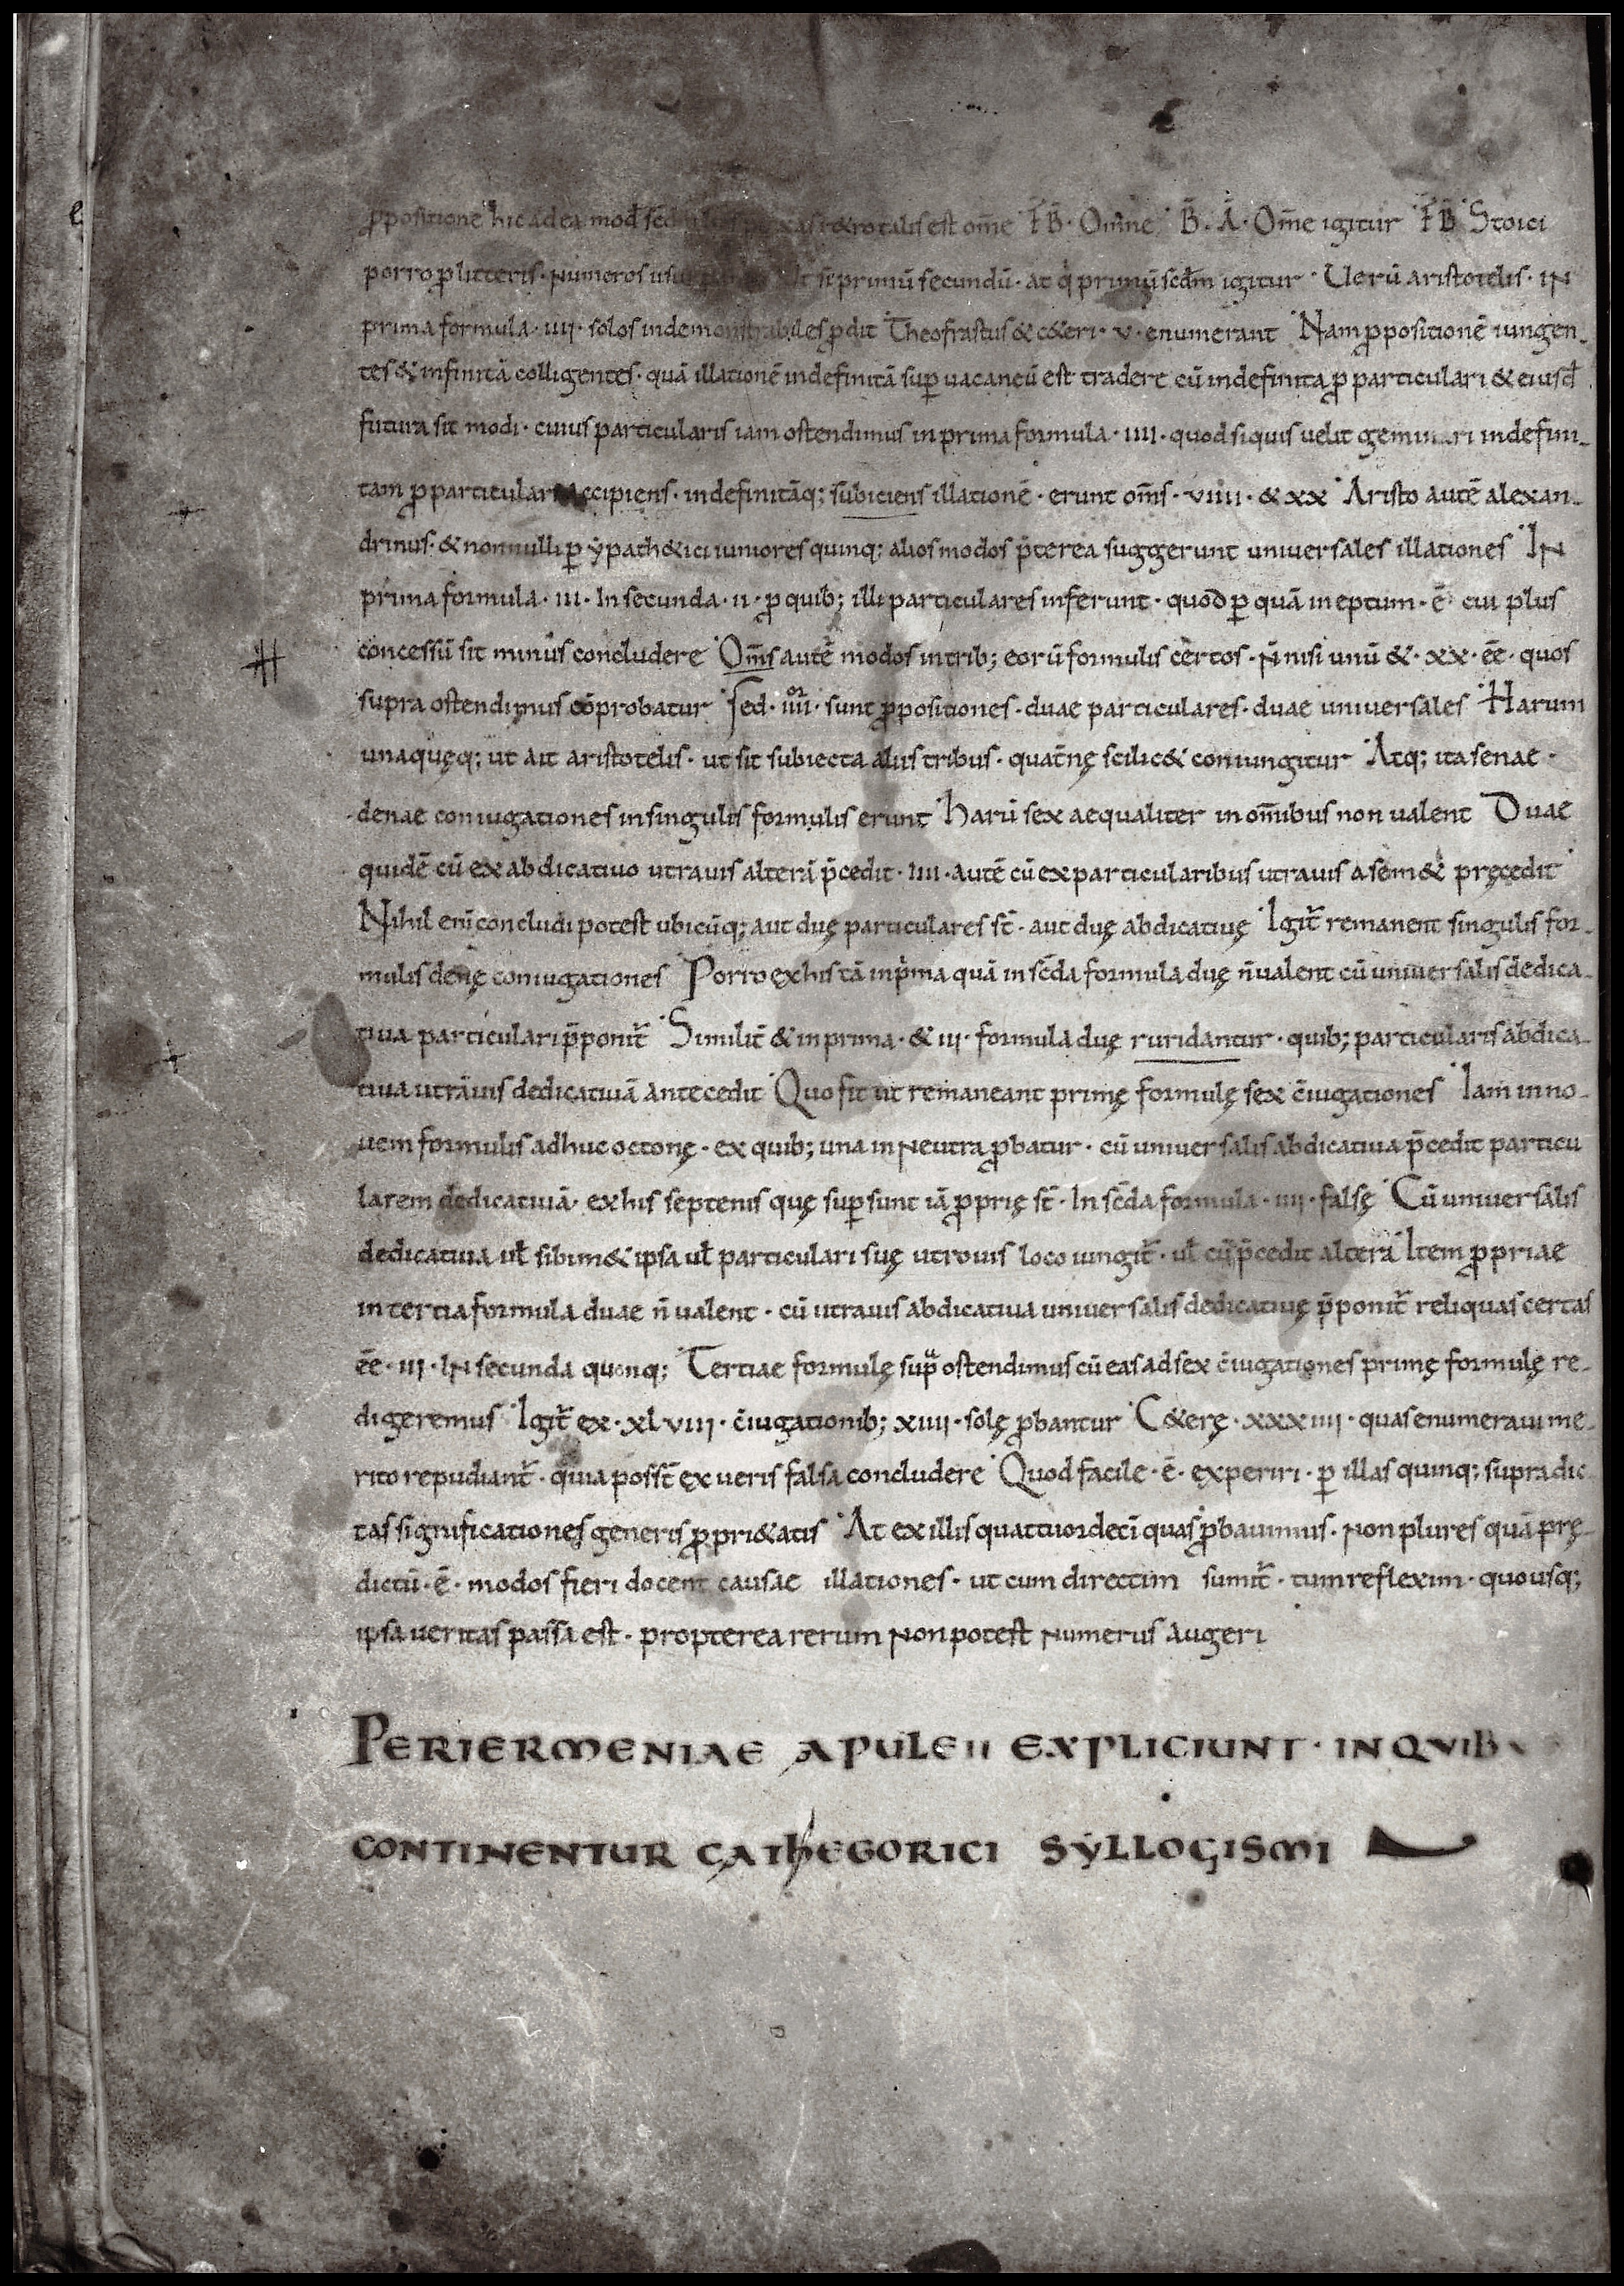 p̄positione hic adea mod̄ est om̄e F̄B̄ · Omne · B̄ · Ā · Om̄e igitur F̄B̄ Stoici
porro p̄ litteris · Numeros si primū secundū · at q̇ primū scd̄m igitur · Uerū aristotelis · IN
prima formula · IIII · solos indemonstrabiles p̄dit Theofrastus & c&eri · V · enumerant Nam p̄positionē iungen-
tes & infinitā colligentes · quā illationē indefinitā sup̱ uacaneū est tradere cū indefinita p̄ particulari & eiusd̄
futura sit modi · cuius particularis iam ostendimus in prima formula · IIII · quod siquis uelit indefini-
tam p̄ particulari accipiens · indefinitāq; subiciens illationē · erunt om̄s · VIIII · & XX Aristo autē alexan-
drinus · & nonnulli p̱ ypath&ici iuniores quinq; alios modos p̄terea suggerunt uniuersales illationes IN
prima formula · III · In secunda · II · p̄ quib; illi particulares inferunt · quod p̱ quā ineptum · ē · cui plus
concessū sit minus concludere Om̄s autē modos in trib; eorū formulis certos · N̄ nisi unū & · XX · ēē · quos
supra ostendimus cōprobatur Sed · IIIIor · sunt p̄positiones · duae particulares · duae uniuersales Harum
unaquęq; ut ait aristotelis · ut sit subiecta aliis tribus · quat̄nę scilic& coniungitur Atq; ita senae ·
denae coniugationes in singulis formulis erunt Harū sex aequaliter in om̄ibus non ualent Duae
quidē cū ex abdicatiuo utrauis alterā p̄cedit · IIII · autē cū ex particularibus utrauis a sem& pręcedit
Nihil eni concludi potest ubicūq; aut duę particulares st̄ · aut duę abdicatiuę Igit̄ remanent singulis for-
mulis denę coniugationes Porro ex his tā in p̍ma quā in sc̄da formula duę n̄ ualent cū uniuersalis dedica-
tiua particulari p̄ponit̄ Similit̄ & in prima · & III · formula duę ruridantur · quib; particularis abdica-
tiua utrāuis dedicatiuā antecedit Quo fit ut remaneant primę formulę sex c̄iugationes Iam in no-
uem formulis adhuc octonę · ex quib; una in neutra p̄batur · cū uniuersalis abdicatiua p̄cedit particu
larem dedicatiuā · ex his septenis quę sup̱sunt iā p̄prię st̄ · In sc̄da formula · IIII · falsę Cū uniuersalis
dedicatiua ul̄ sibim& ipsa ul̄ particulari suę utrouis loco iungit̄ · ul̄ cū p̄cedit alterā Item p̄priae
in tertia formula duae n̄ ualent · cū utrauis abdicatiua uniuersalis dedicatiuę p̄ponit̄ reliquas certas
ēē · III · IN secunda quinq; Tertiae formulę sup̄ ostendimus cū eas ad sex c̄iugationes primę formulę re-
digeremus Igit̄ ex · XLVIII · c̄iugationib; XIIII · solę p̄bantur C&erę · XXXIIII · quas enumeraui me-
rito repudiant̄ · quia posst̄ ex ueris falsa concludere Quod facile · ē · experiri · p̱ illas quinq; supradic
tas significationes generis p̄pri&atis At ex illis quattuordeci quas p̄bauimus · Non plures quā prę-
dictū · ē · modos fieri docent causae illationes · ut cum directim sumit̄ · tum reflexim · quousq;
ipsa ueritas passa est · propterea rerum Non potest Numerus augeri
PERIERMENIAE APULEII EXPLICIUNT · IN QUIB
CONTINENTUR CATHEGORICI SYLLOGISMI